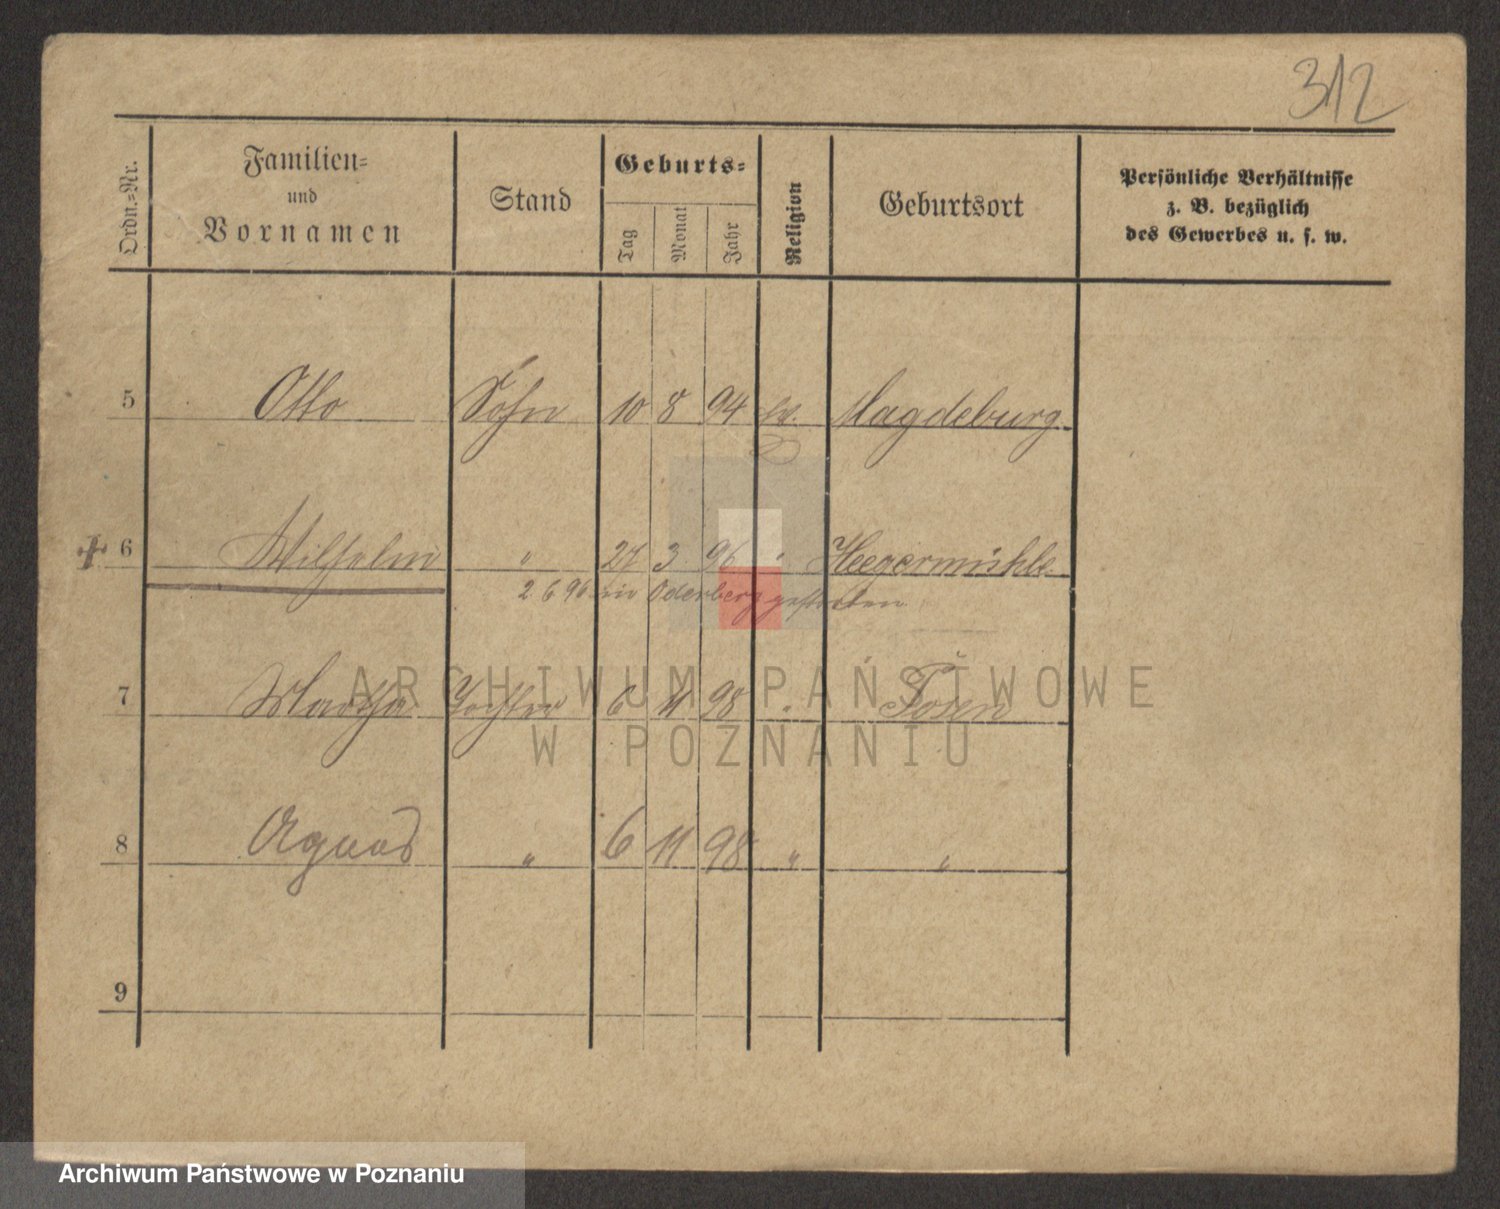 312
Ordn.-Nr.
Familien-
und
Vornamen
Stand
Geburts-
Tag
Monat
Jahr
Religion
Geburtsort
Persönliche Verhältnisse
z. B. bezüglich
des Gewerbes u. s. w.
5 Otto Sohn 10 8 94 ev. Magdeburg
6 Wilhelm " 24 3 96 " Heegermühle
2 6 96 in Oderberg gestorben
7 Martha Tochter 6 11 98 " Posen
ARCHIWUM PAŃSTWOWE
W POZNANIU
8 Agnes " 6 11 98 " "
9
Archiwum Państwowe w Poznaniu